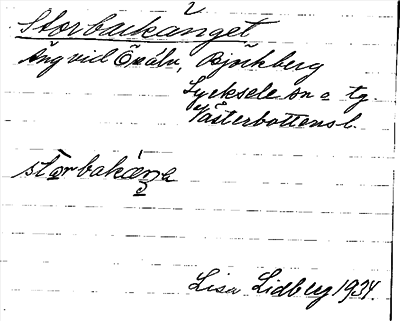 2
Storbackänget
äng vid Öreälv, Björkberg
Lycksele sn o tg.
Västerbottensl.
Lisa Lidberg 1934.